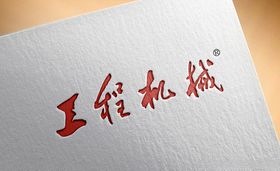 工程机械®